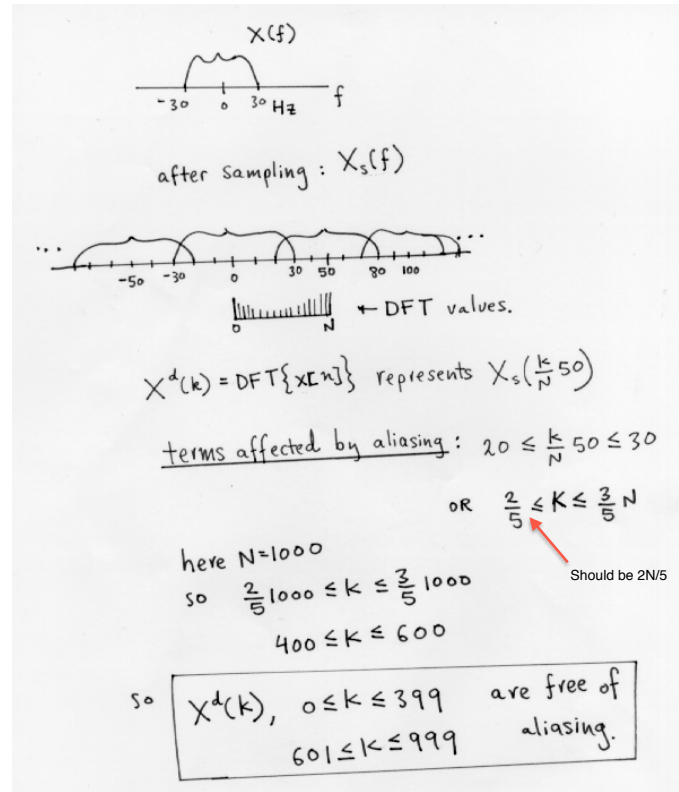 X(f)
-30 0 30 Hz f
after sampling : Xₛ(f)
... ...
-50 -30 0 30 50 80 100
0 N ← DFT values.
Xᵈ(k) = DFT{x[n]} represents Xₛ(k/N 50)
terms affected by aliasing : 20 ≤ k/N 50 ≤ 30
OR 2/5 ≤ K ≤ 3/5 N
Should be 2N/5
here N=1000
so 2/5 1000 ≤ k ≤ 3/5 1000
400 ≤ k ≤ 600
so Xᵈ(k), 0 ≤ k ≤ 399 are free of
601 ≤ k ≤ 999 aliasing.